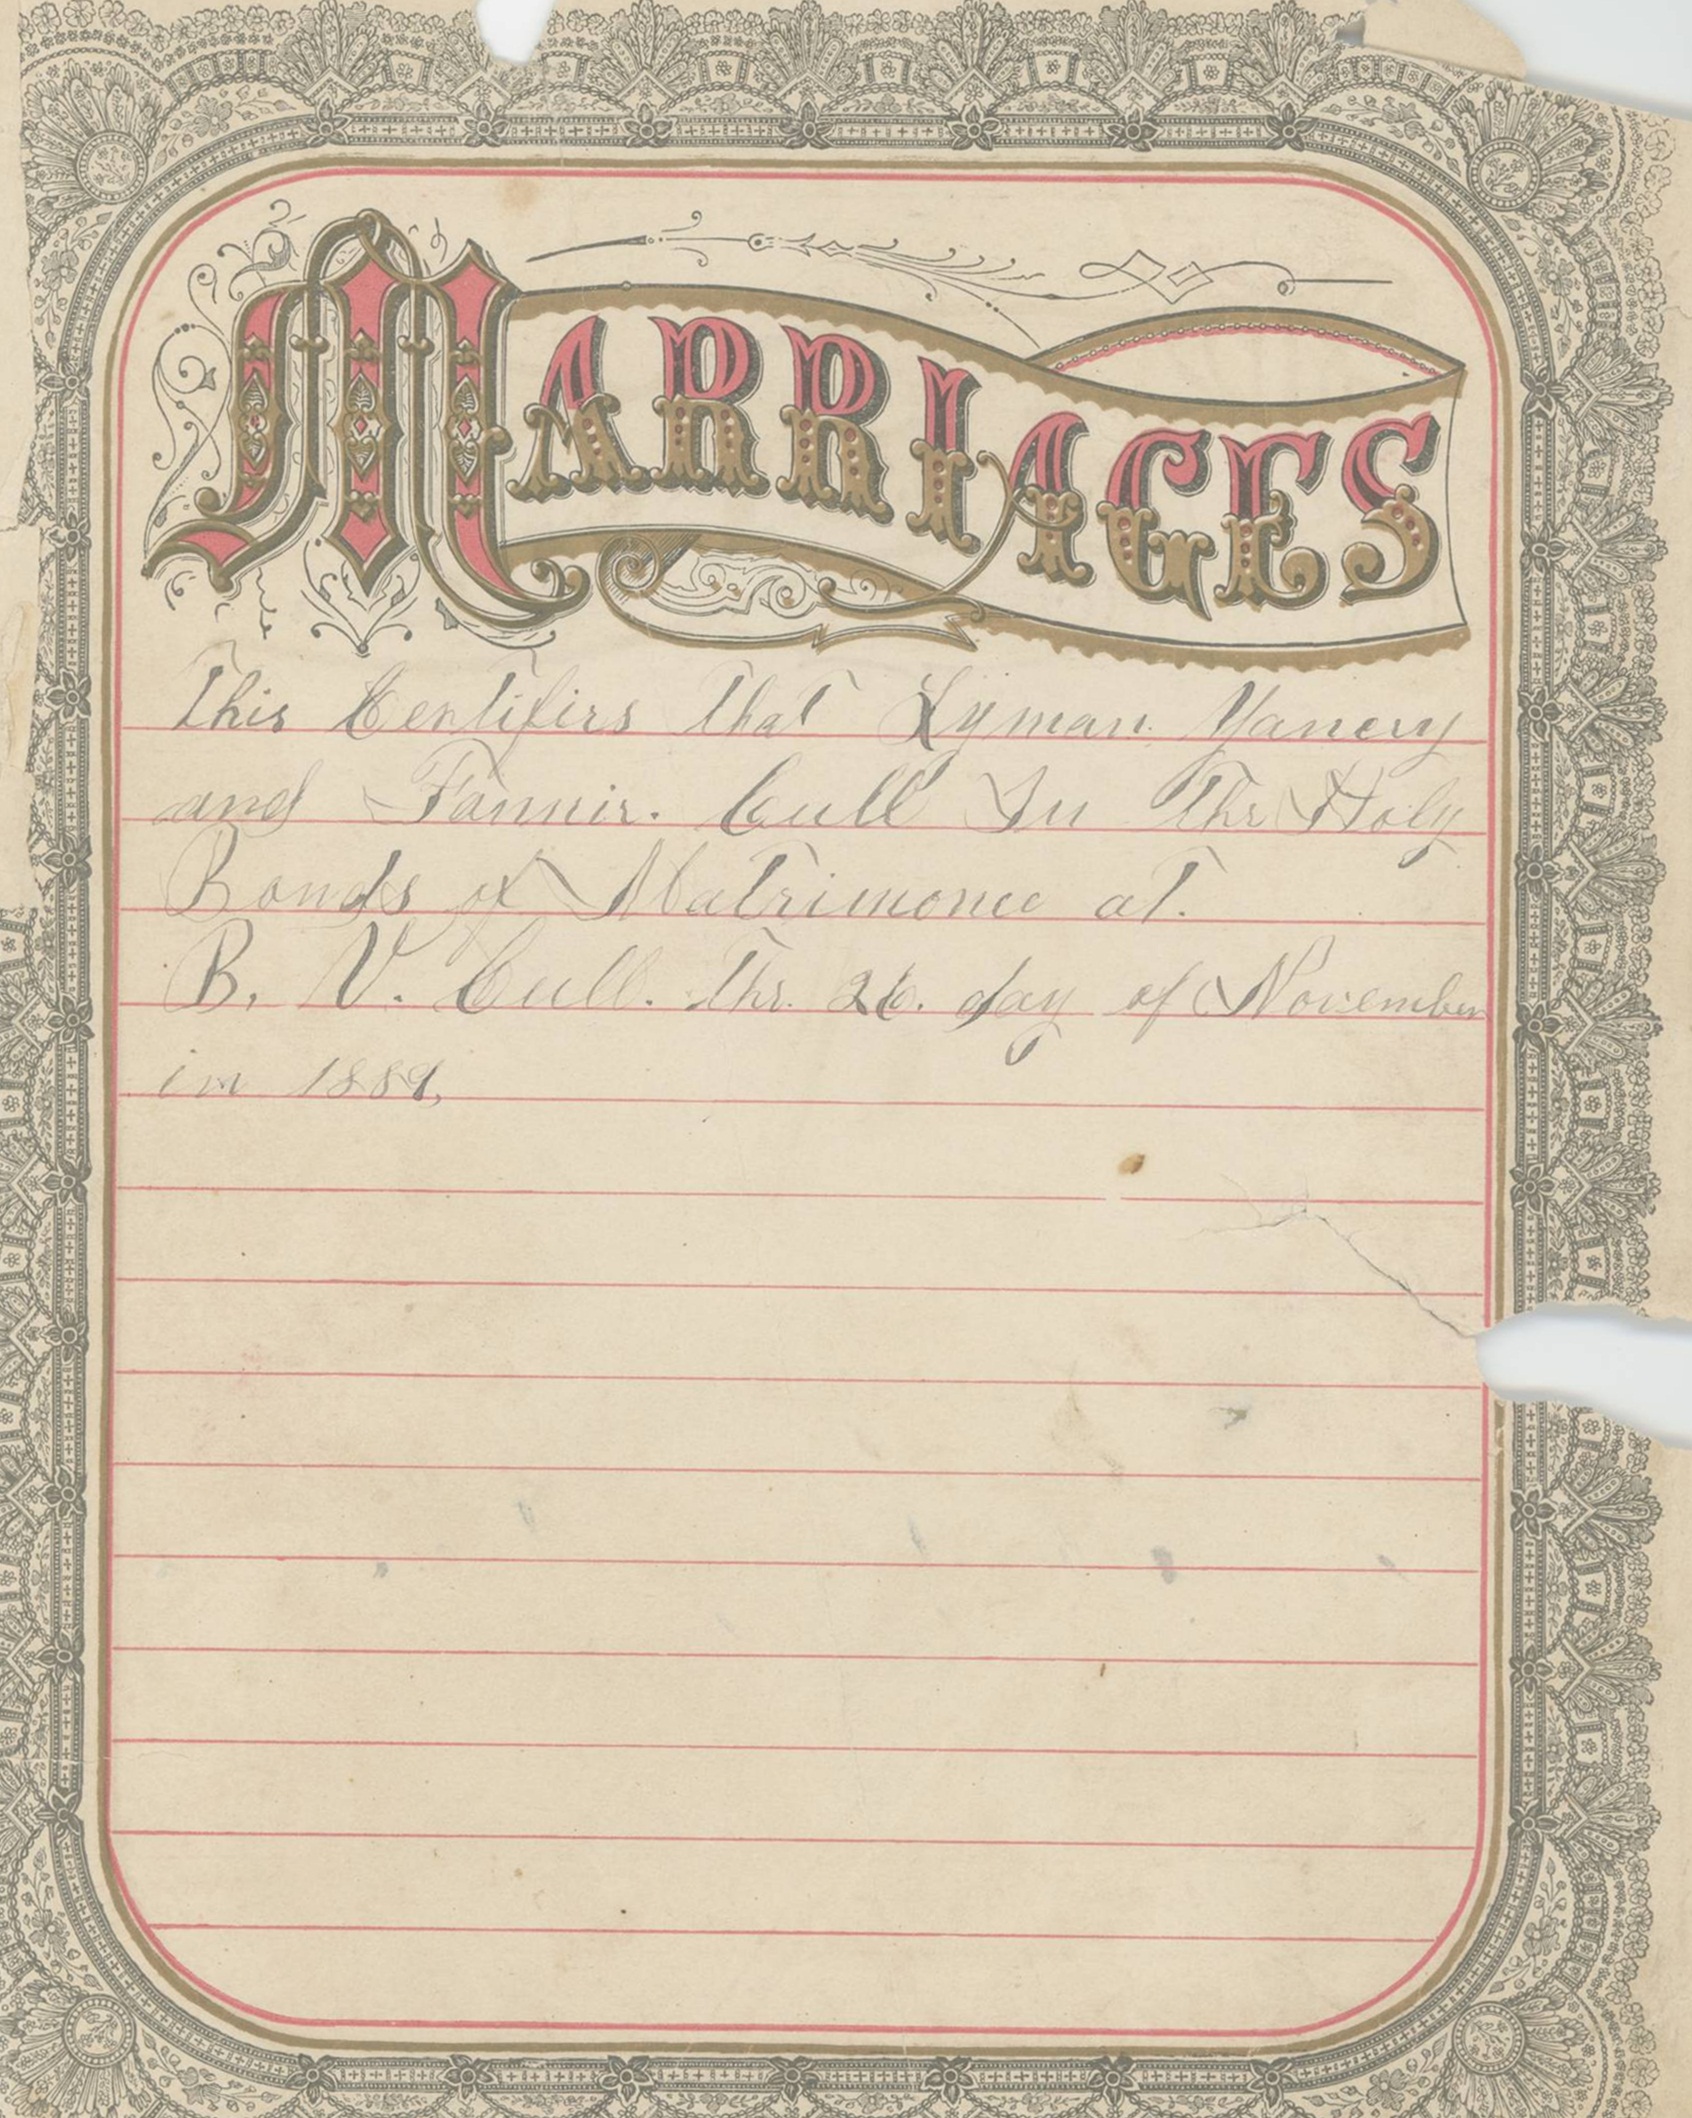 MARRIAGES
This Certifies That Lyman Yancey
and Fannie. Cull In The Holy
Bonds of Matrimonee at.
B. V. Cull. The. 26. day of November
in 1889,